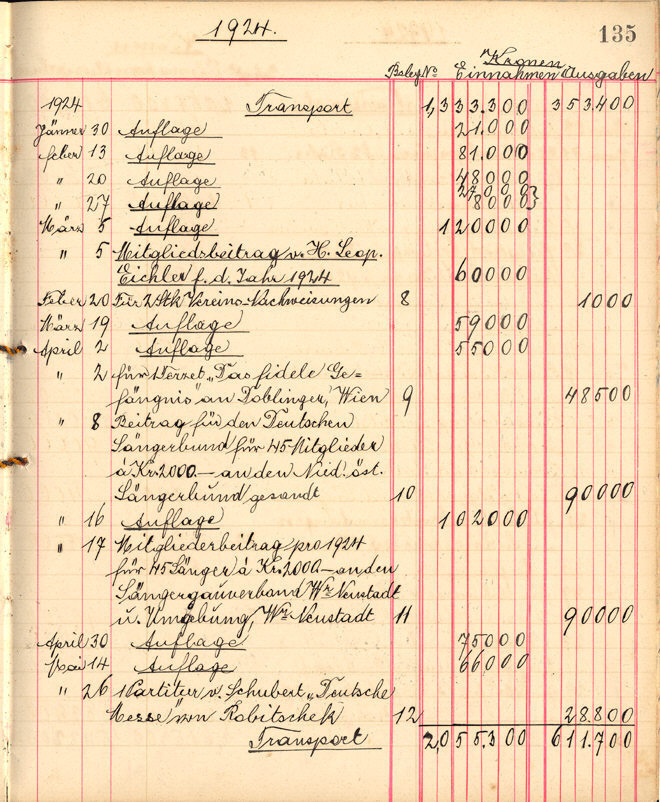 1924.
135
Kronen
Beleg No Einnahmen Ausgaben
1924 Transport 1,333.300 353.400
Jänner 30 Auflage 21.000
Feber 13 Auflage 81.000
" 20 Auflage 48000
" 27 Auflage 27000 8000}
März 5 Auflage 120000
" 5 Mitgliedsbeitrag v. H. Leop.
Eichler f. d. Jahr 1924 60000
Feber 20 Für 2 Stk Vereins-Nachweisungen 8 1000
März 19 Auflage 59000
April 2 Auflage 55000
" 2 für 1 Terzet „Das fidele Ge=
fängnis" an Doblinger, Wien 9 48500
" 8 Beitrag für den Deutschen
Sängerbund für 45 Mitglieder
à Kr. 2000.— an den Nied. öst.
Sängerbund gesandt 10 90000
" 16 Auflage 102000
" 17 Mitgliederbeitrag pro 1924
für 45 Sänger à Kr. 2000.— an den
Sängergauverband Wr. Neustadt
u. Umgebung, Wr. Neustadt 11 90000
April 30 Auflage 75000
Mai 14 Auflage 66000
" 26 1 Partitur v. Schubert „Deutsche
Messe" von Robitschek 12 28.800
Transport 2,055.300 611.700